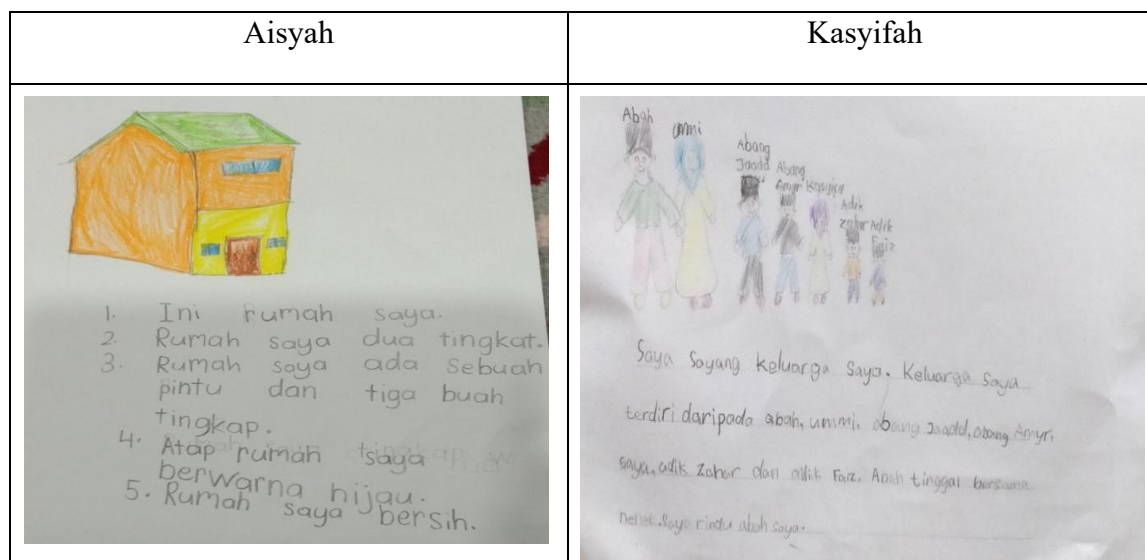 Aisyah
Kasyifah
1. Ini rumah saya.
2. Rumah saya dua tingkat.
3. Rumah saya ada sebuah
pintu dan tiga buah
tingkap.
4. Atap rumah saya
berwarna hijau.
5. Rumah saya bersih.
Abah
ummi
Abang
Jaadd
Abang
Amyr
Kasyifa
Adik
Zahar
Adik
Faiz
Saya Sayang keluarga saya. Keluarga saya
terdiri daripada abah, ummi, abang Jaadd, abang Amyr,
saya, adik Zahar dan adik Faiz. Abah tinggal bersama
nenek. Saya rindu abah saya.